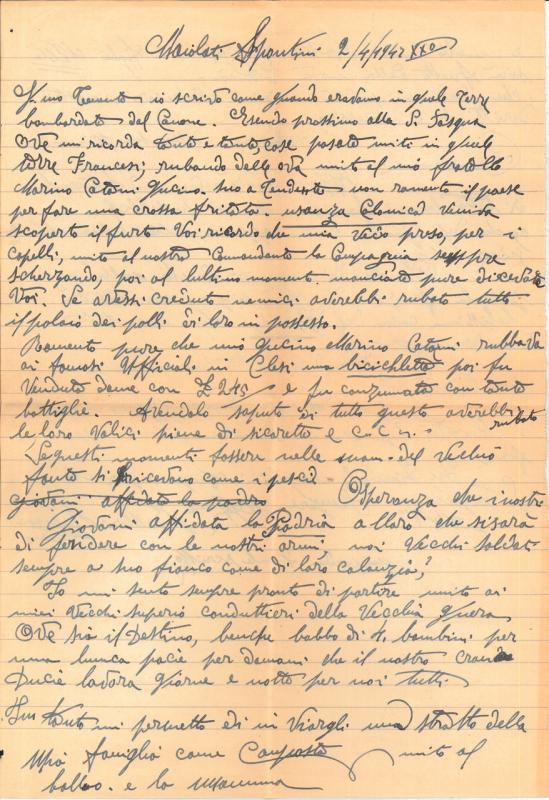 Maiolati Spontini 2/4/1942 XXº
Tenente io scrivo come quando eravamo in quele terre
bombardate dal Canone. Esendo prossimo alla S. Pasqua
Ove mi ricorda tante e tante cose pasate uniti in quele
terre Francesi, rubando delle ova unito al mio fratello
Marino Catani non ramento il paese
per fare una grossa fritata. usanza Colonica veniva
scoperto il furto Voi ricordo che mia preso, per i
capelli, unito al nostro Comandante la Compagnia sempre
scherzando, poi al lultimo momento manciato pure di
Voi. Se avessi creduto nemici averebbi rubato tutto
il polaio dei polli di loro in possesso.
Ramento pure che mio Marino Catani rubbava
ai famosi Ufficiali in una bicichletta poi fu
Venduto dame con £ 245 e fu conzumato con tante
battiglie. Avendolo saputo di tutto questo averebbi rubato
le loro Valici piene di sicarette e
Se questi momenti fossero nelle man del Vechio
fante si come i pesci
giovani affidato la padra Osperanza che i nostri
Giovani affidata la Padria alloro che si sarà
di fesidere con le nostri armi noi Vecchi soldati
sempre a suo fianco come di loro
Io mi sento sempre pronto di partire unito ai
miei Vecchi superio conduttieri della Vecchia guera
Ove sia il Destino, benche babbo di 4 bambini per
una lunca pacie per domani che il nostro grande
Ducie lavora giorne e notto per noi tutti.
tanto mi permetto di in Viargli una stratto della
Mia famiglia come Composta unito al
babbo. e la Mamma